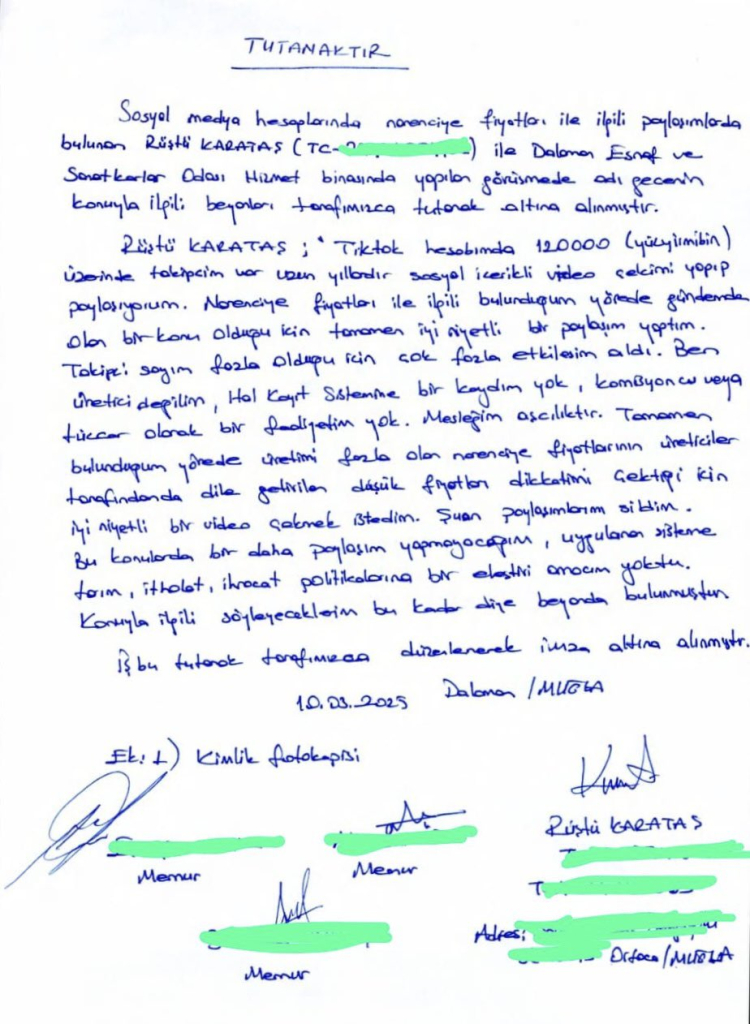 TUTANAKTIR
Sosyal medya hesaplarında narenciye fiyatları ile ilgili paylaşımlarda
bulunan Rüştü KARATAŞ (TC-) ile Dalaman Esnaf ve
Sanatkarlar Odası Hizmet binasında yapılan görüşmede adı geçenin
konuyla ilgili beyanları tarafımızca tutanak altına alınmıştır.
Rüştü KARATAŞ ; " Tiktok hesabımda 120000 (yüzyirmibin)
üzerinde takipçim var uzun yıllardır sosyal içerikli video çekimi yapıp
paylaşıyorum. Narenciye fiyatları ile ilgili bulunduğum yörede gündemde
olan bir konu olduğu için tamamen iyi niyetli bir paylaşım yaptım.
Takipçi sayım fazla olduğu için çok fazla etkileşim aldı. Ben
üretici değilim, Hal Kayıt Sistemine bir kaydım yok, komisyoncu veya
tüccar olarak bir faaliyetim yok. Mesleğim aşçılıktır. Tamamen
bulunduğum yörede üretimi fazla olan narenciye fiyatlarının üreticiler
tarafındanda dile getirilen düşük fiyatlar dikkatimi çektiği için
iyi niyetli bir video çekmek istedim. Şuan paylaşımlarım sildim.
Bu konularda bir daha paylaşım yapmayacağım, uygulanan sisteme
tarım, ithalat, ihracat politikalarına bir eleştiri amacım yoktu.
Konuyla ilgili söyleyeceklerim bu kadar diye beyanda bulunmuştur.
İş bu tutanak tarafımızca düzenlenerek imza altına alınmıştır.
10.03.2025 Dalaman /MUĞLA
Ek: 1) Kimlik fotokopisi
Rüştü KARATAŞ
Memur
Memur
Adres:
Ortaca/MUĞLA
Memur